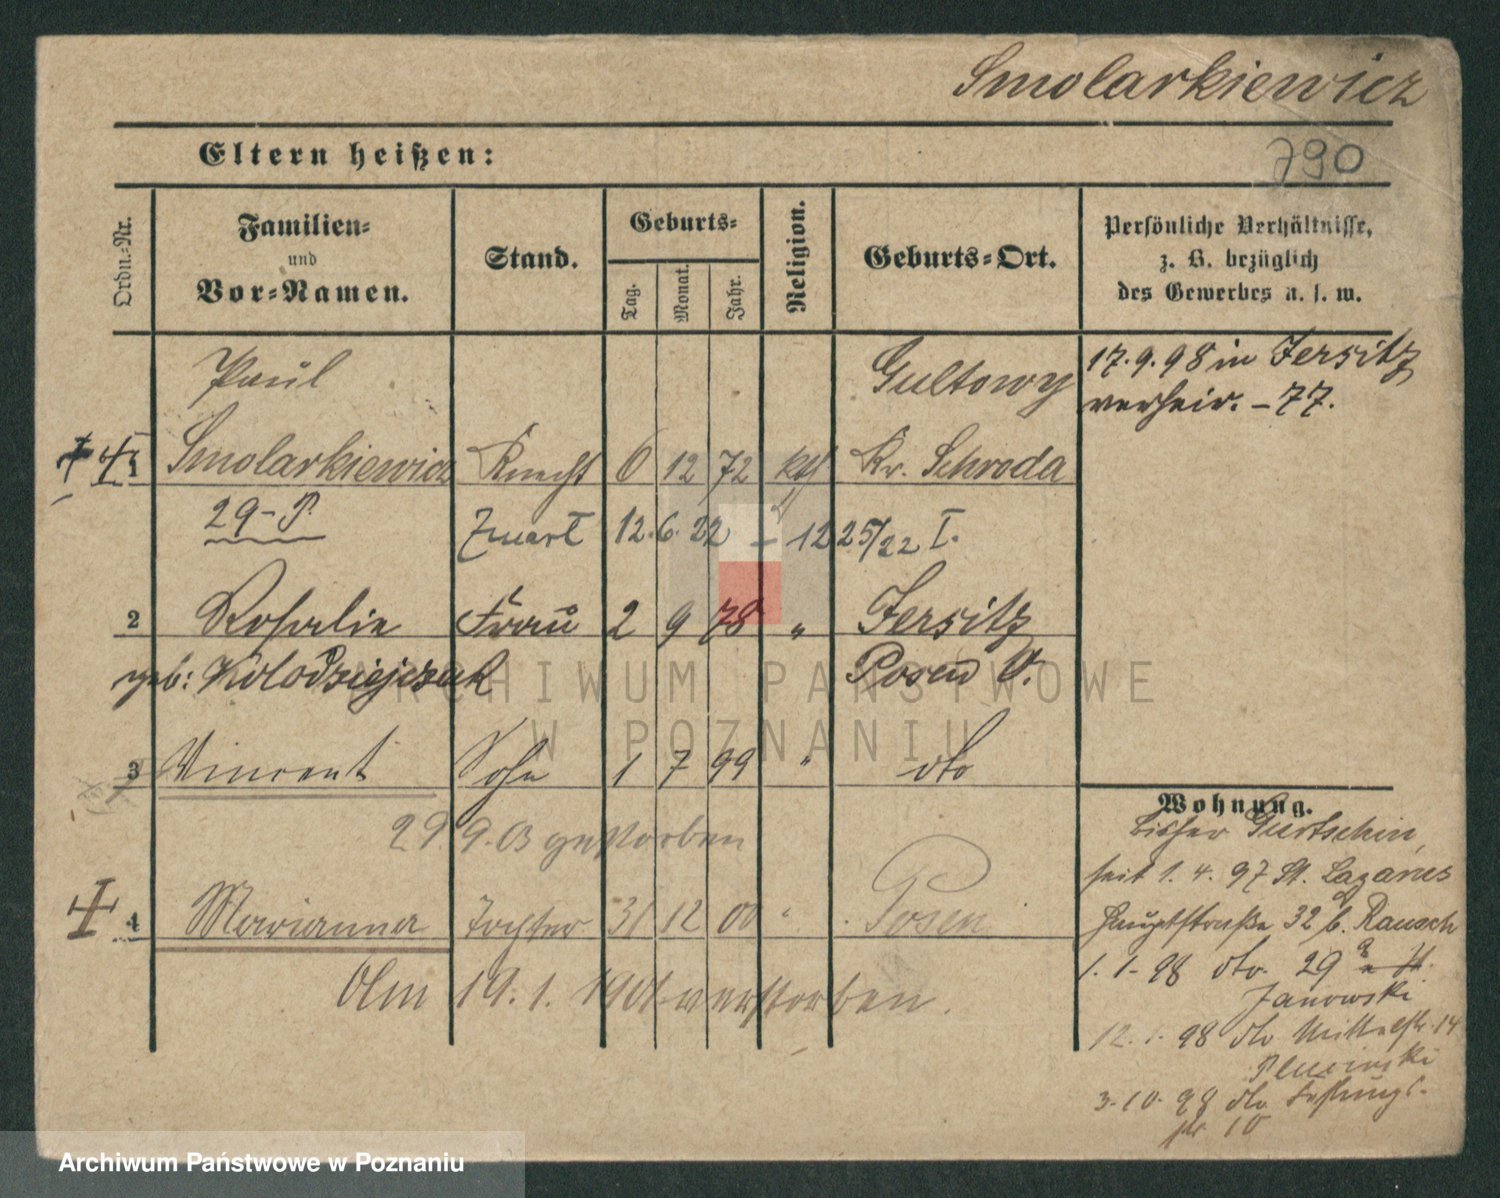 Smolarkiewicz
Eltern heißen:
790
Ordn.-Nr.
Familien-
und
Vor-Namen.
Stand.
Geburts-
Tag.
Monat.
Jahr.
Religion.
Geburts-Ort.
Persönliche Verhältnisse,
z. B. bezüglich
des Gewerbes u. s. w.
Paul Gultowy
17.9.98 in Jersitz
verheir. - 77.
1 Smolarkiewicz Knecht 6 12 72 kth Kr. Schroda
29-P. 12.6.22 - 1225/22 I.
2 Rosalie Frau 2 9 78 " Jersitz
geb: Kolodziejczak Posen O.
3 Vincent Sohn 1 7 99 " dto
29.9.03 gestorben
4 Marianna Tochter 31 12 00 " Posen
Am 19.1.1901 verstorben.
Wohnung.
bisher Gurtschin,
seit 1.4.97 St. Lazarus
Hauptstraße 32 b. Rausch
1.1.98 dto. 29
Janowski
12.1.98 dto Mittelstr. 14
3.10.98 dto
str 10
ARCHIWUM PAŃSTWOWE
W POZNANIU
Archiwum Państwowe w Poznaniu